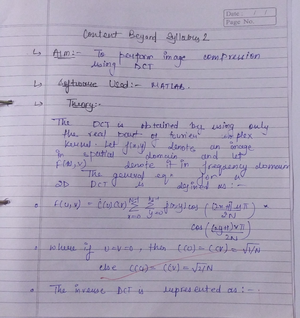 Date: / /
Page No.
Content Beyond Syllabus 2
↳ Aim:- To perform image compression
using DCT
↳ Software Used:- MATLAB.
↳ Theory:-
The DCT is obtained by using only
the real part of fourier complex
kernel. Let f(x,y) denote an image
in spatial domain and let
F(u,v) denote it in frequency domain
The general eqn for a
2D DCT is defined as:-
• f(u,v) = C(u)C(v) N-1∑x=0 N-1∑y=0 f(x,y) cos((2x+1)uπ/2N) *
cos((2y+1)vπ/2N)
• where if u=v=0, then C(u) = C(v) = √1/N
else C(u) = C(v) = √2/N
• The inverse DCT is represented as:-